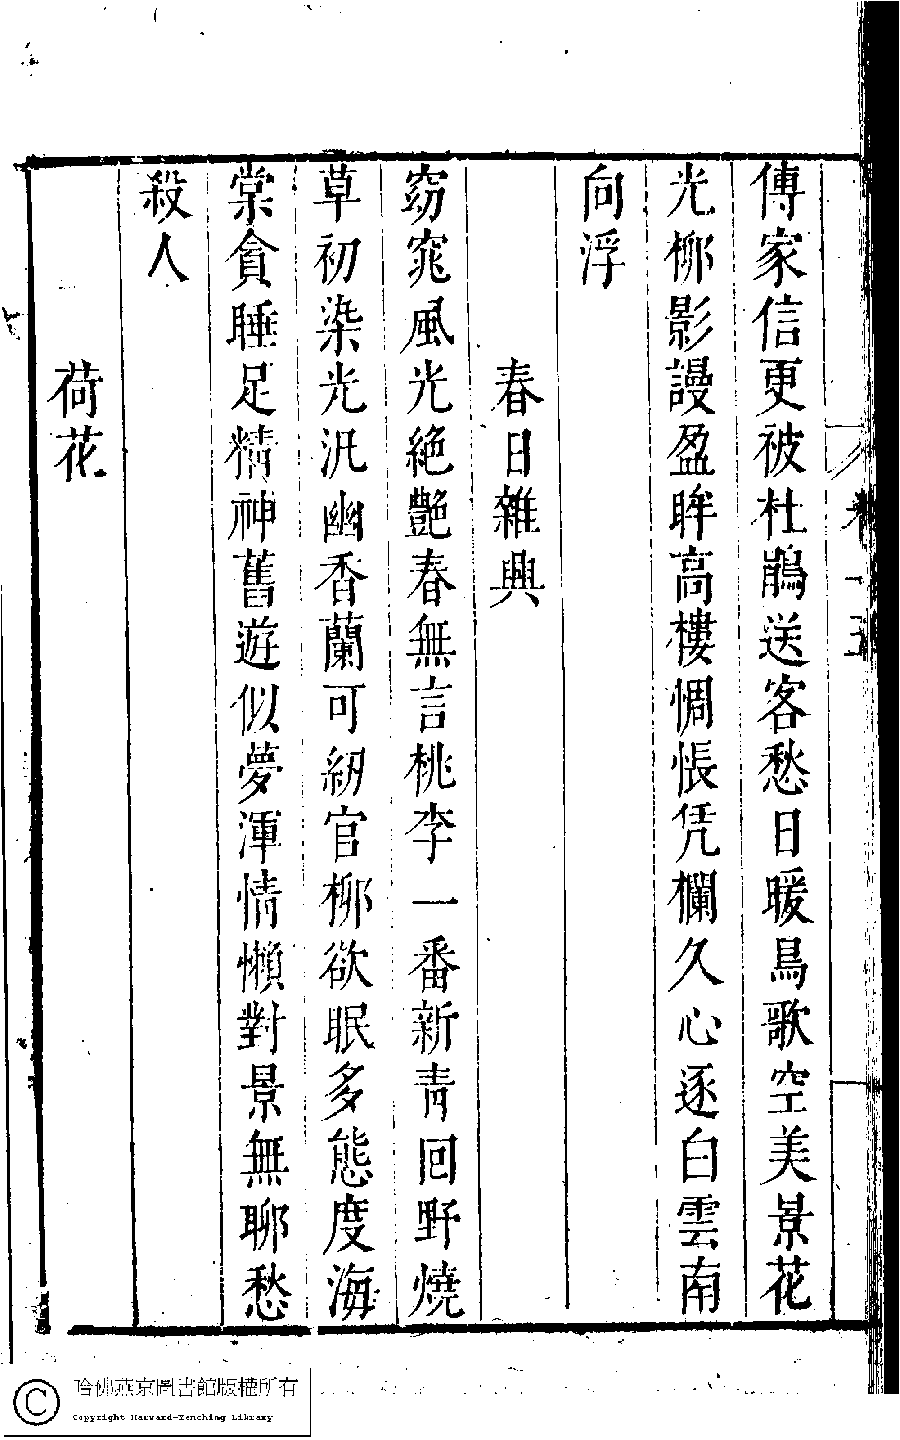 傳家信更被杜鵑送客愁日暖鳥歌空美景花
光柳影謾盈眸高樓惆悵凭欄久心逐白雲南
向浮
春日雜興
窈窕風光絶艷春無言桃李一番新青回野燒
草初染光汎幽香蘭可紉官柳欲眠多態度海
棠貪睡足精神舊遊似夢渾情懶對景無聊愁
殺人
荷花
哈佛燕京圖書館版權所有
Copyright Harvard-Yenching Library